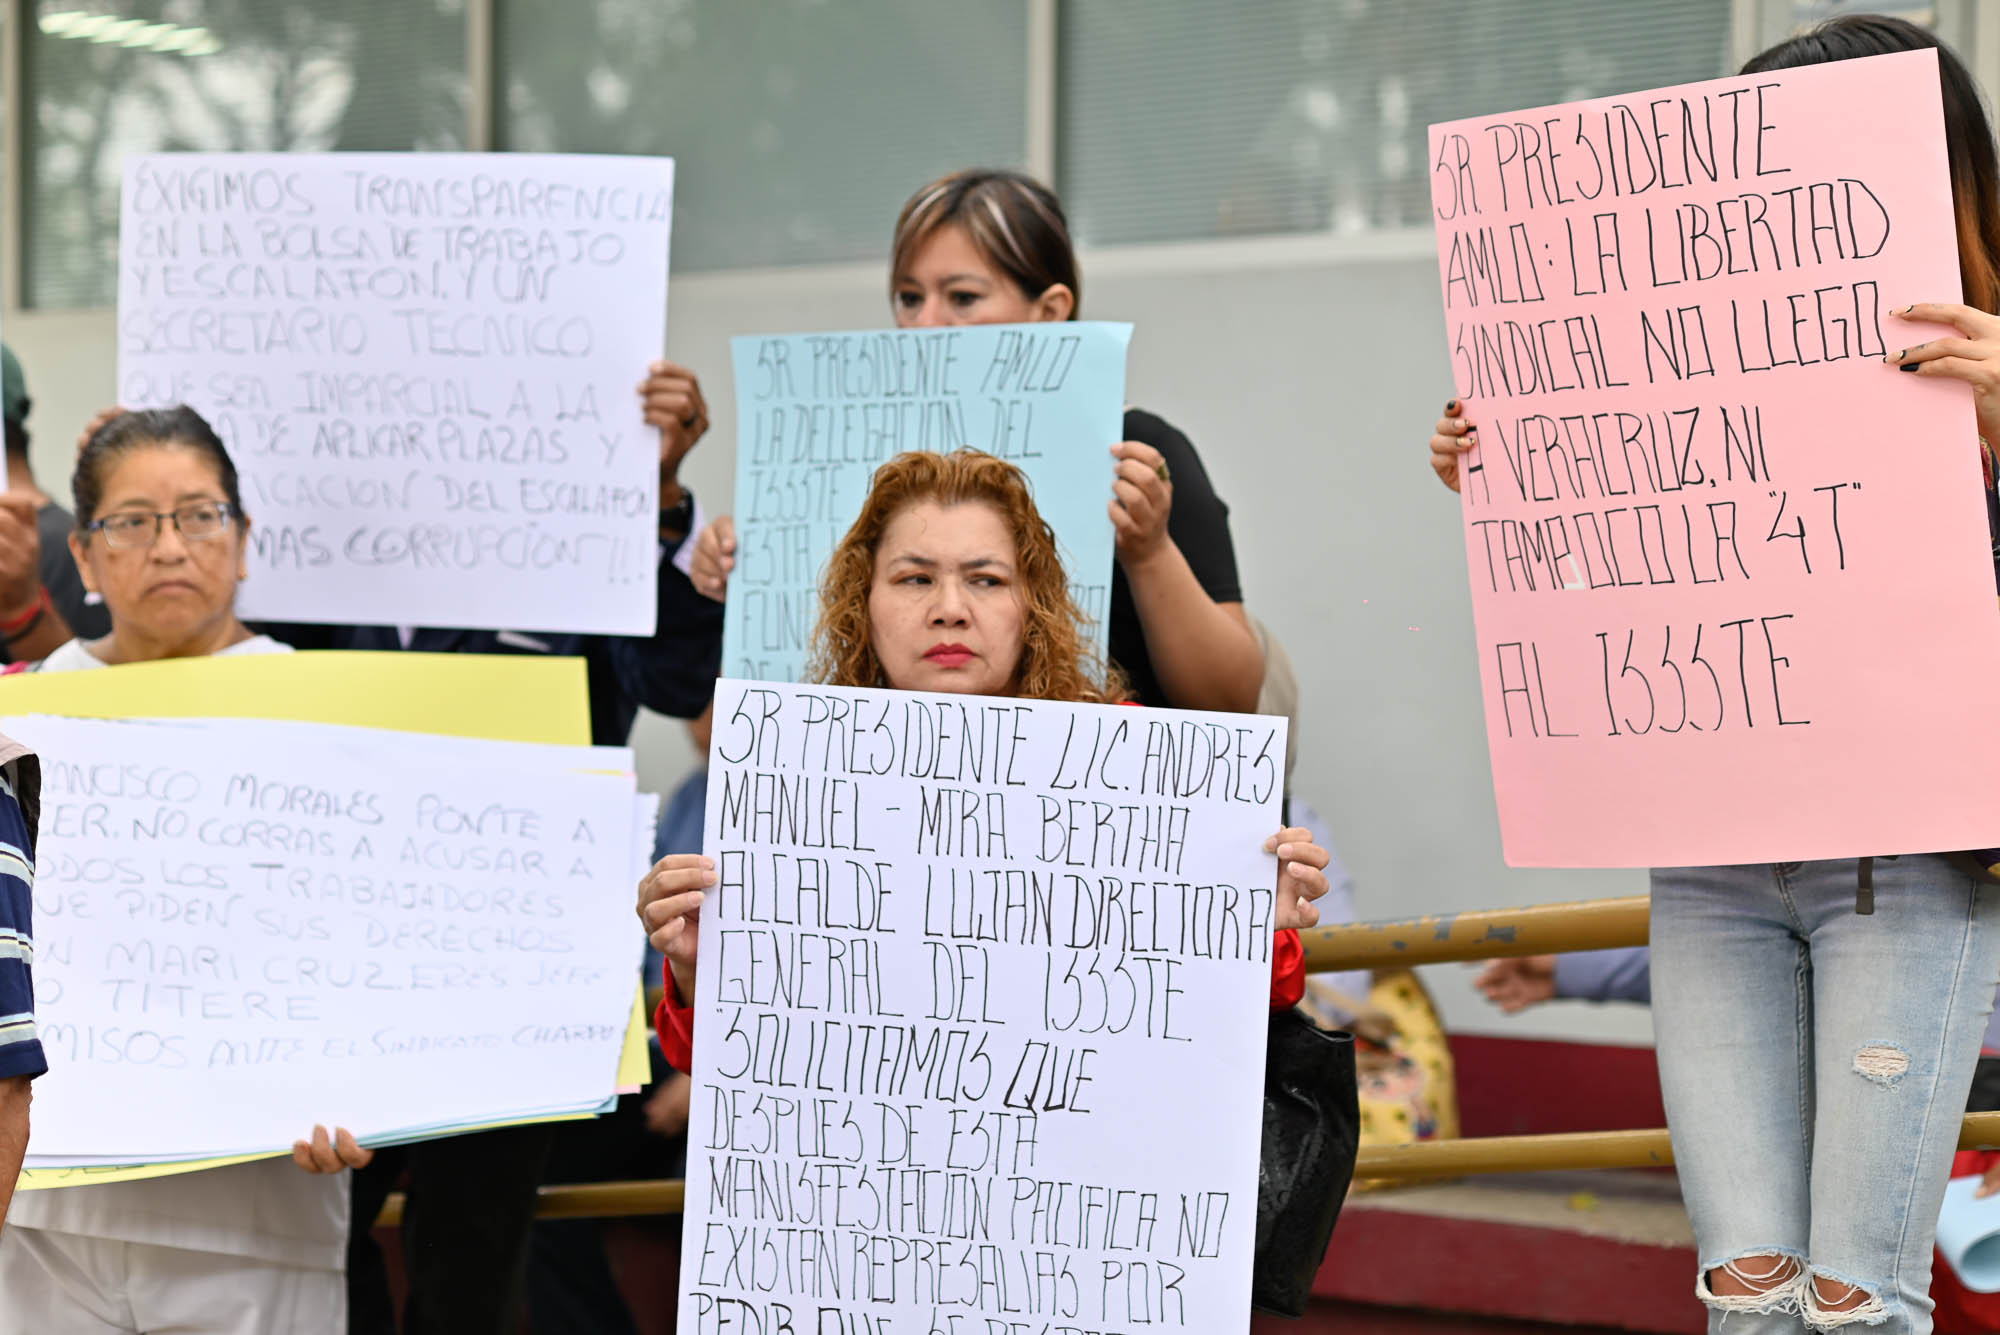 EXIGIMOS TRANSPARENCIA
EN LA BOLSA DE TRABAJO
Y ESCALAFON. Y UN
SECRETARIO TECNICO
QUE SEA IMPARCIAL A LA
A DE APLICAR PLAZAS Y
ICACION DEL ESCALAFON
MAS CORRUPCION!!!
RANCISCO MORALES PONTE A
ER. NO CORRAS A ACUSAR A
ODOS LOS TRABAJADORES
UE PIDEN SUS DERECHOS
N MARI CRUZ. ERES JEFE
O TITERE
MISOS ANTE EL SINDICATO CHARRO
SR. PRESIDENTE AMLO
LA DELEGACION DEL
ISSSTE
ESTA
FUN
DE
SR. PRESIDENTE LIC. ANDRES
MANUEL - MTRA. BERTHA
ALCALDE LUJAN DIRECTORA
GENERAL DEL ISSSTE
"SOLICITAMOS QUE
DESPUES DE ESTA
MANISFESTACION PACIFICA NO
EXISTAN REPRESALIAS POR
PEDIR QUE SE RESPET
SR. PRESIDENTE
AMLO: LA LIBERTAD
SINDICAL NO LLEGO
A VERACRUZ, NI
TAMPOCO LA "4T"
AL ISSSTE